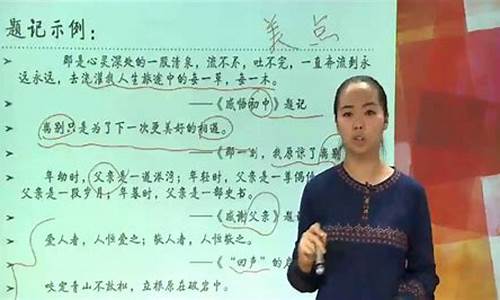 题记示例：
美点
那是心灵深处的一股清泉，流不尽，吐不完，一直奔流到永
远永远，去浇灌我人生旅途中的每一草，每一木。
——《感悟初中》题记
离别只是为了下一次更美好的相遇。
——《那一刻，我原谅了离别
年幼时，父亲是一道港湾；年轻时，父亲是一尊偶像
父亲是一段岁月；年暮时，父亲是一部史书。
——《感谢父亲》题记
爱人者，人恒爱之；敬人者，人恒敬之。
——《“回声”的
咬定青山不放松，立根原在破岩中。